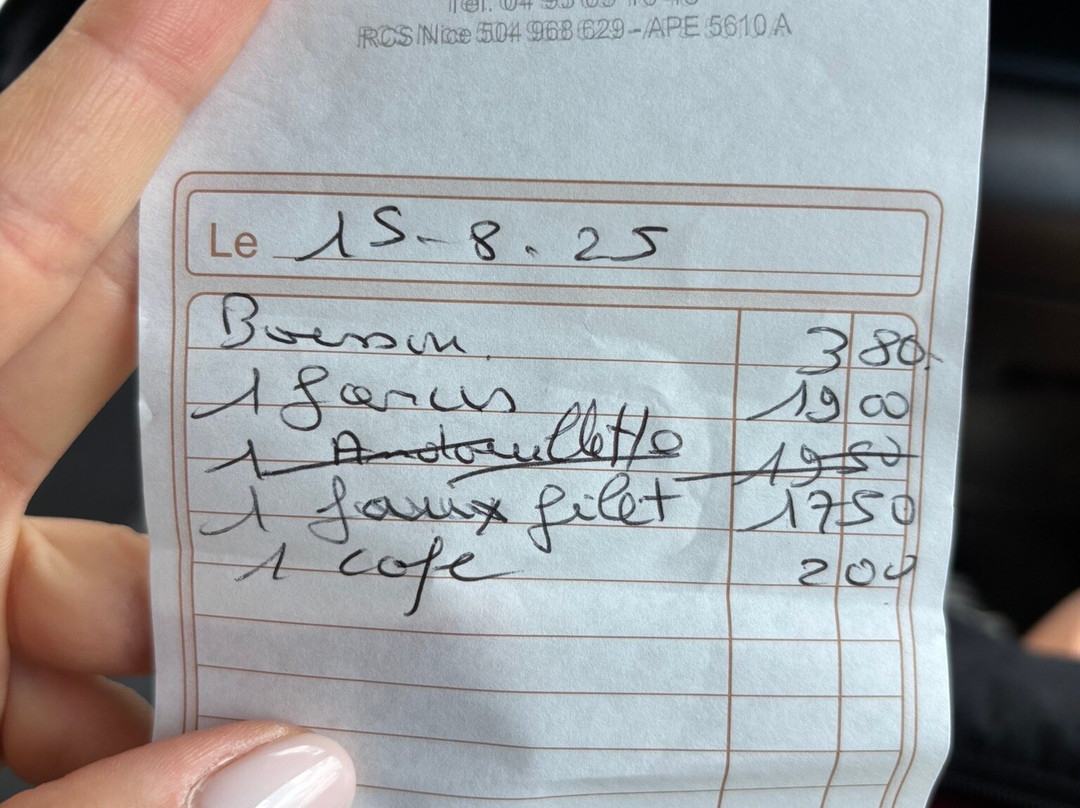 RCS Nice 504 968 629 - APE 5610 A
Le 15-8.25
Boisson 3 80
1 farcis 19 00
1 Andouillette 19 50
1 faux filet 17 50
1 cafe 2 00